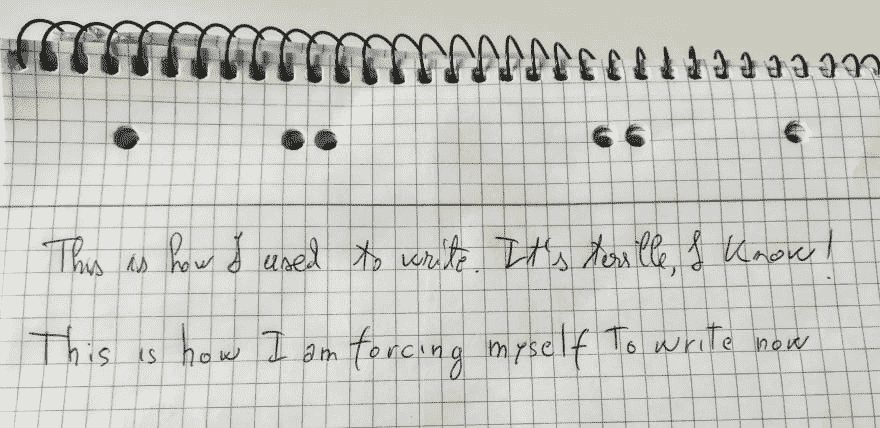 This is how I used to write. It's terrille, I know!
This is how I am forcing myself To write now